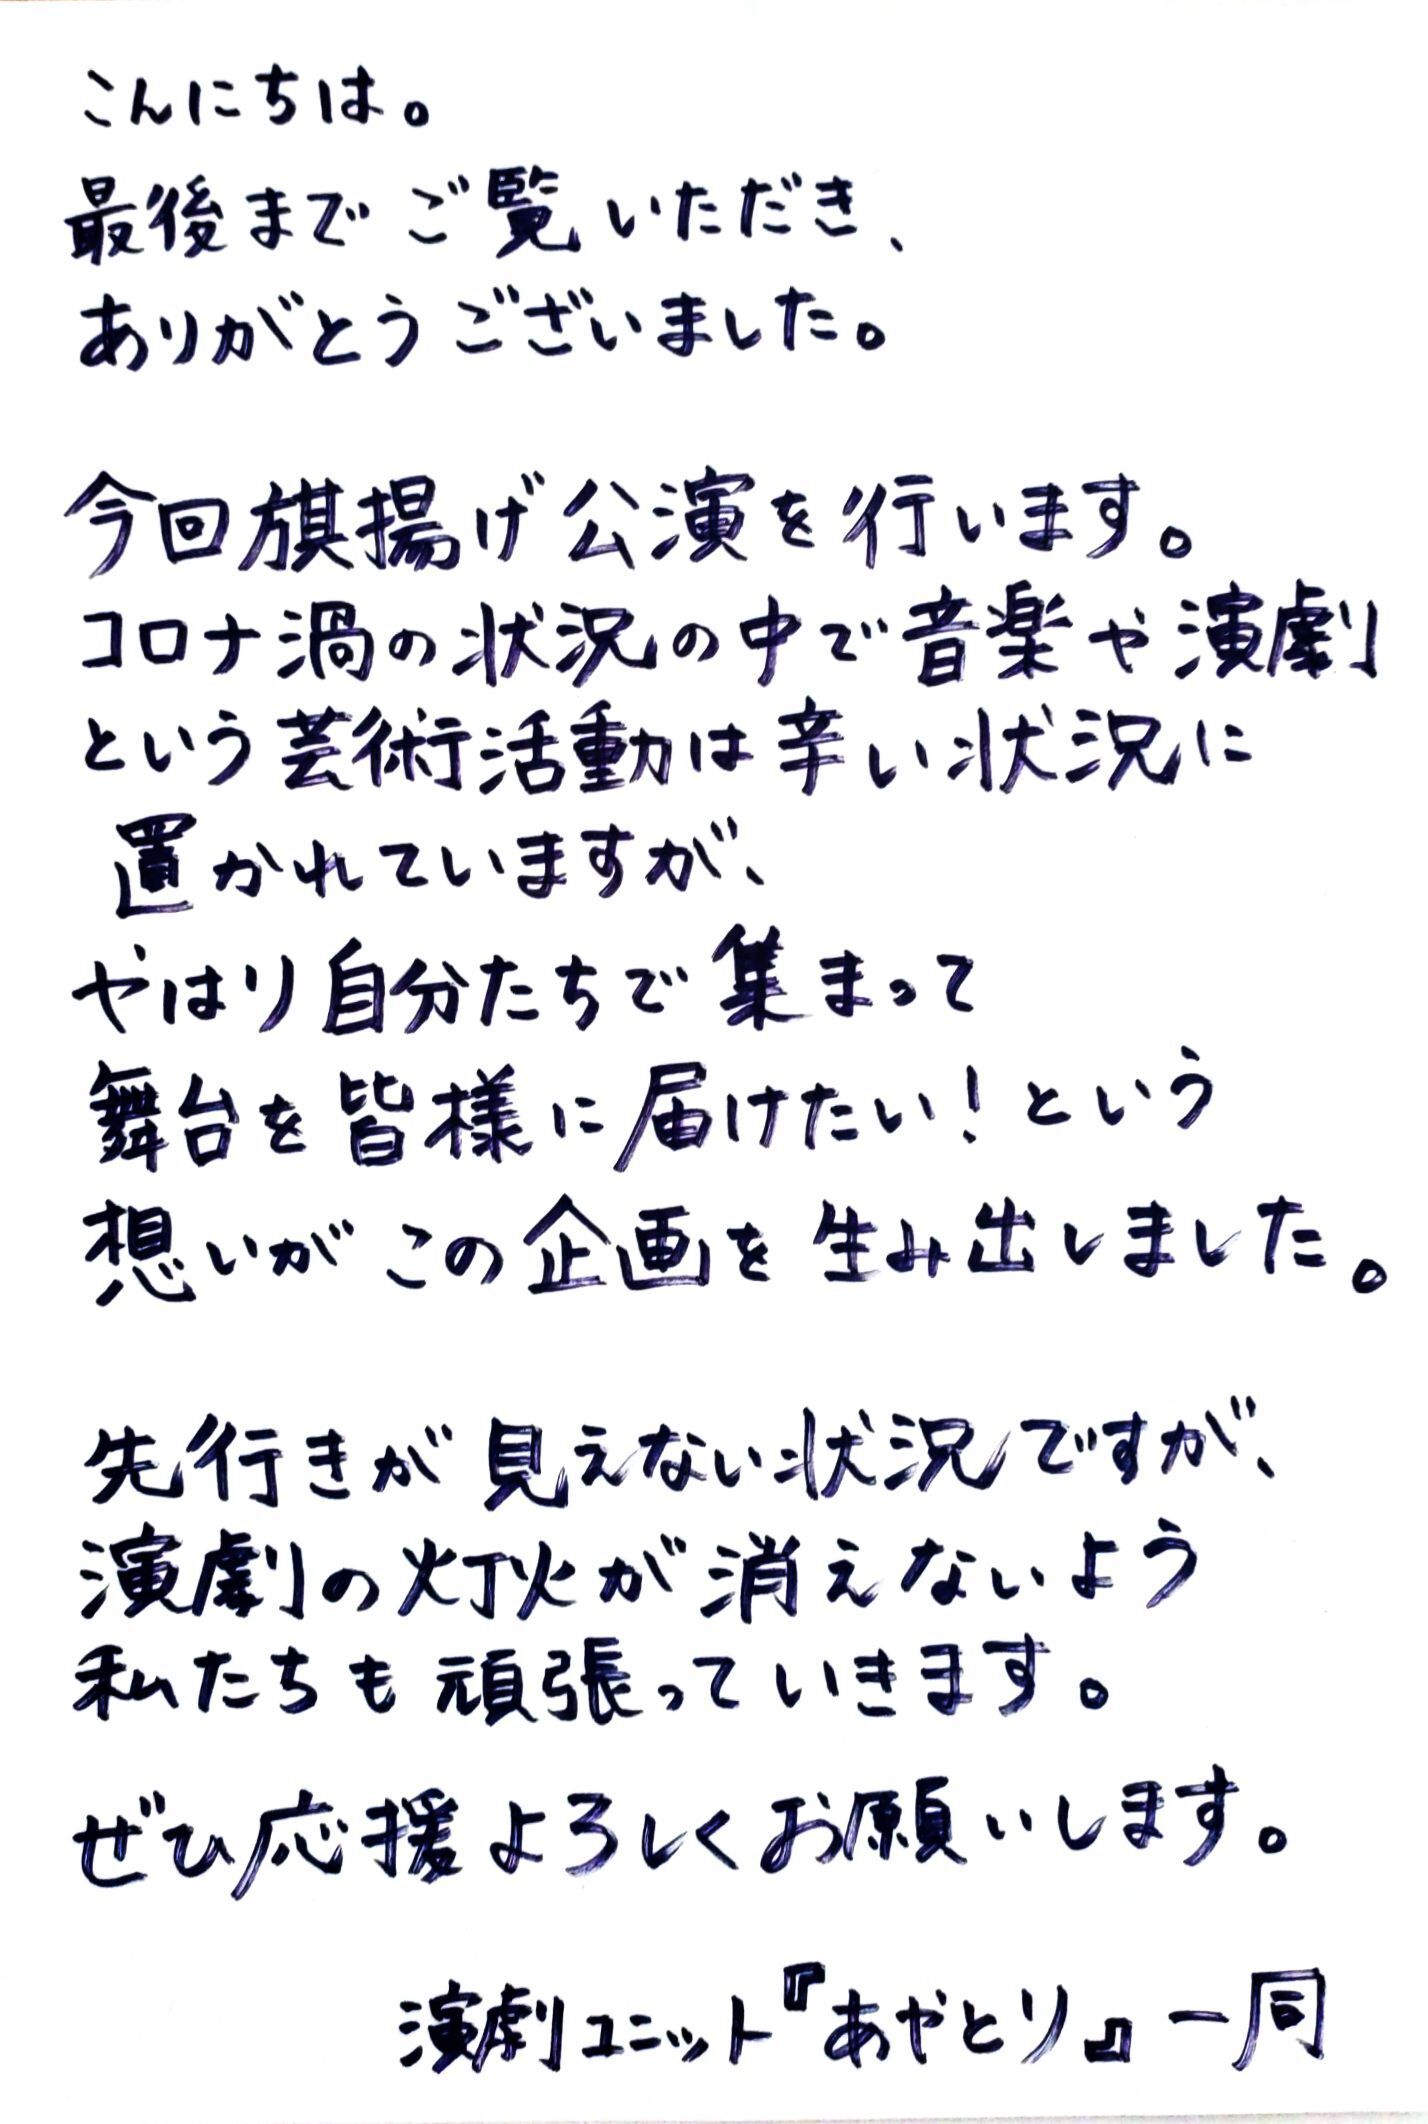 こんにちは。
最後までご覧いただき、
ありがとうございました。
今回旗揚げ公演を行います。
コロナ渦の状況の中で音楽や演劇
という芸術活動は辛い状況に
置かれていますが、
やはり自分たちで集まって
舞台を皆様に届けたい！という
想いがこの企画を生み出しました。
先行きが見えない状況ですが、
演劇の灯火が消えないよう
私たちも頑張っていきます。
ぜひ応援よろしくお願いします。
演劇ユニット『あやとり』一同